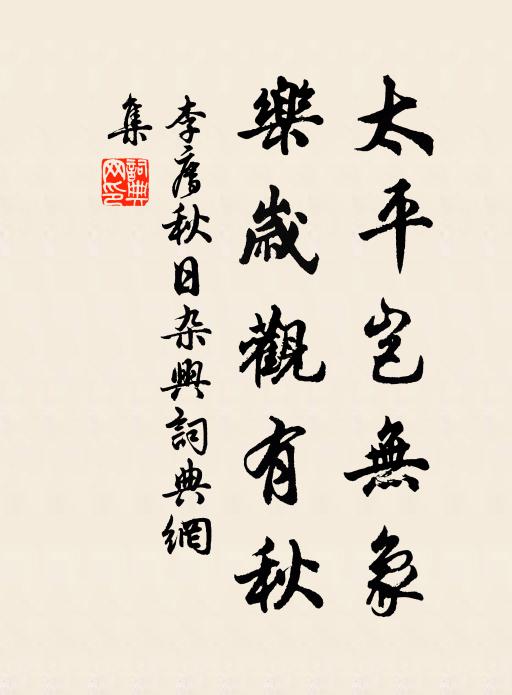 太平岂無象
樂歲觀有秋
李廌秋日杂興詞典網
集
詞典
网印